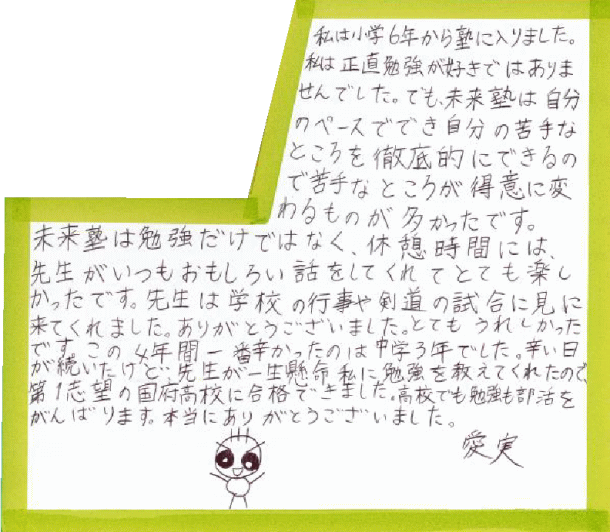 私は小学6年から塾に入りました。
私は正直勉強が好きではありま
せんでした。でも、未来塾は自分
のペースででき自分の苦手な
ところを徹底的にできるの
で苦手なところが得意に変
わるものが多かったです。
未来塾は勉強だけではなく、休憩時間には、
先生がいつもおもしろい話をしてくれてとても楽し
かったです。先生は学校の行事や剣道の試合に見に
来てくれました。ありがとうございました。とてもうれしかった
です。この4年間一番辛かったのは中学3年でした。辛い日
が続いたけど、先生が一生懸命私に勉強を教えてくれたので
第1志望の国府高校に合格できました。高校でも勉強も部活を
がんばります。本当にありがとうございました。
愛実